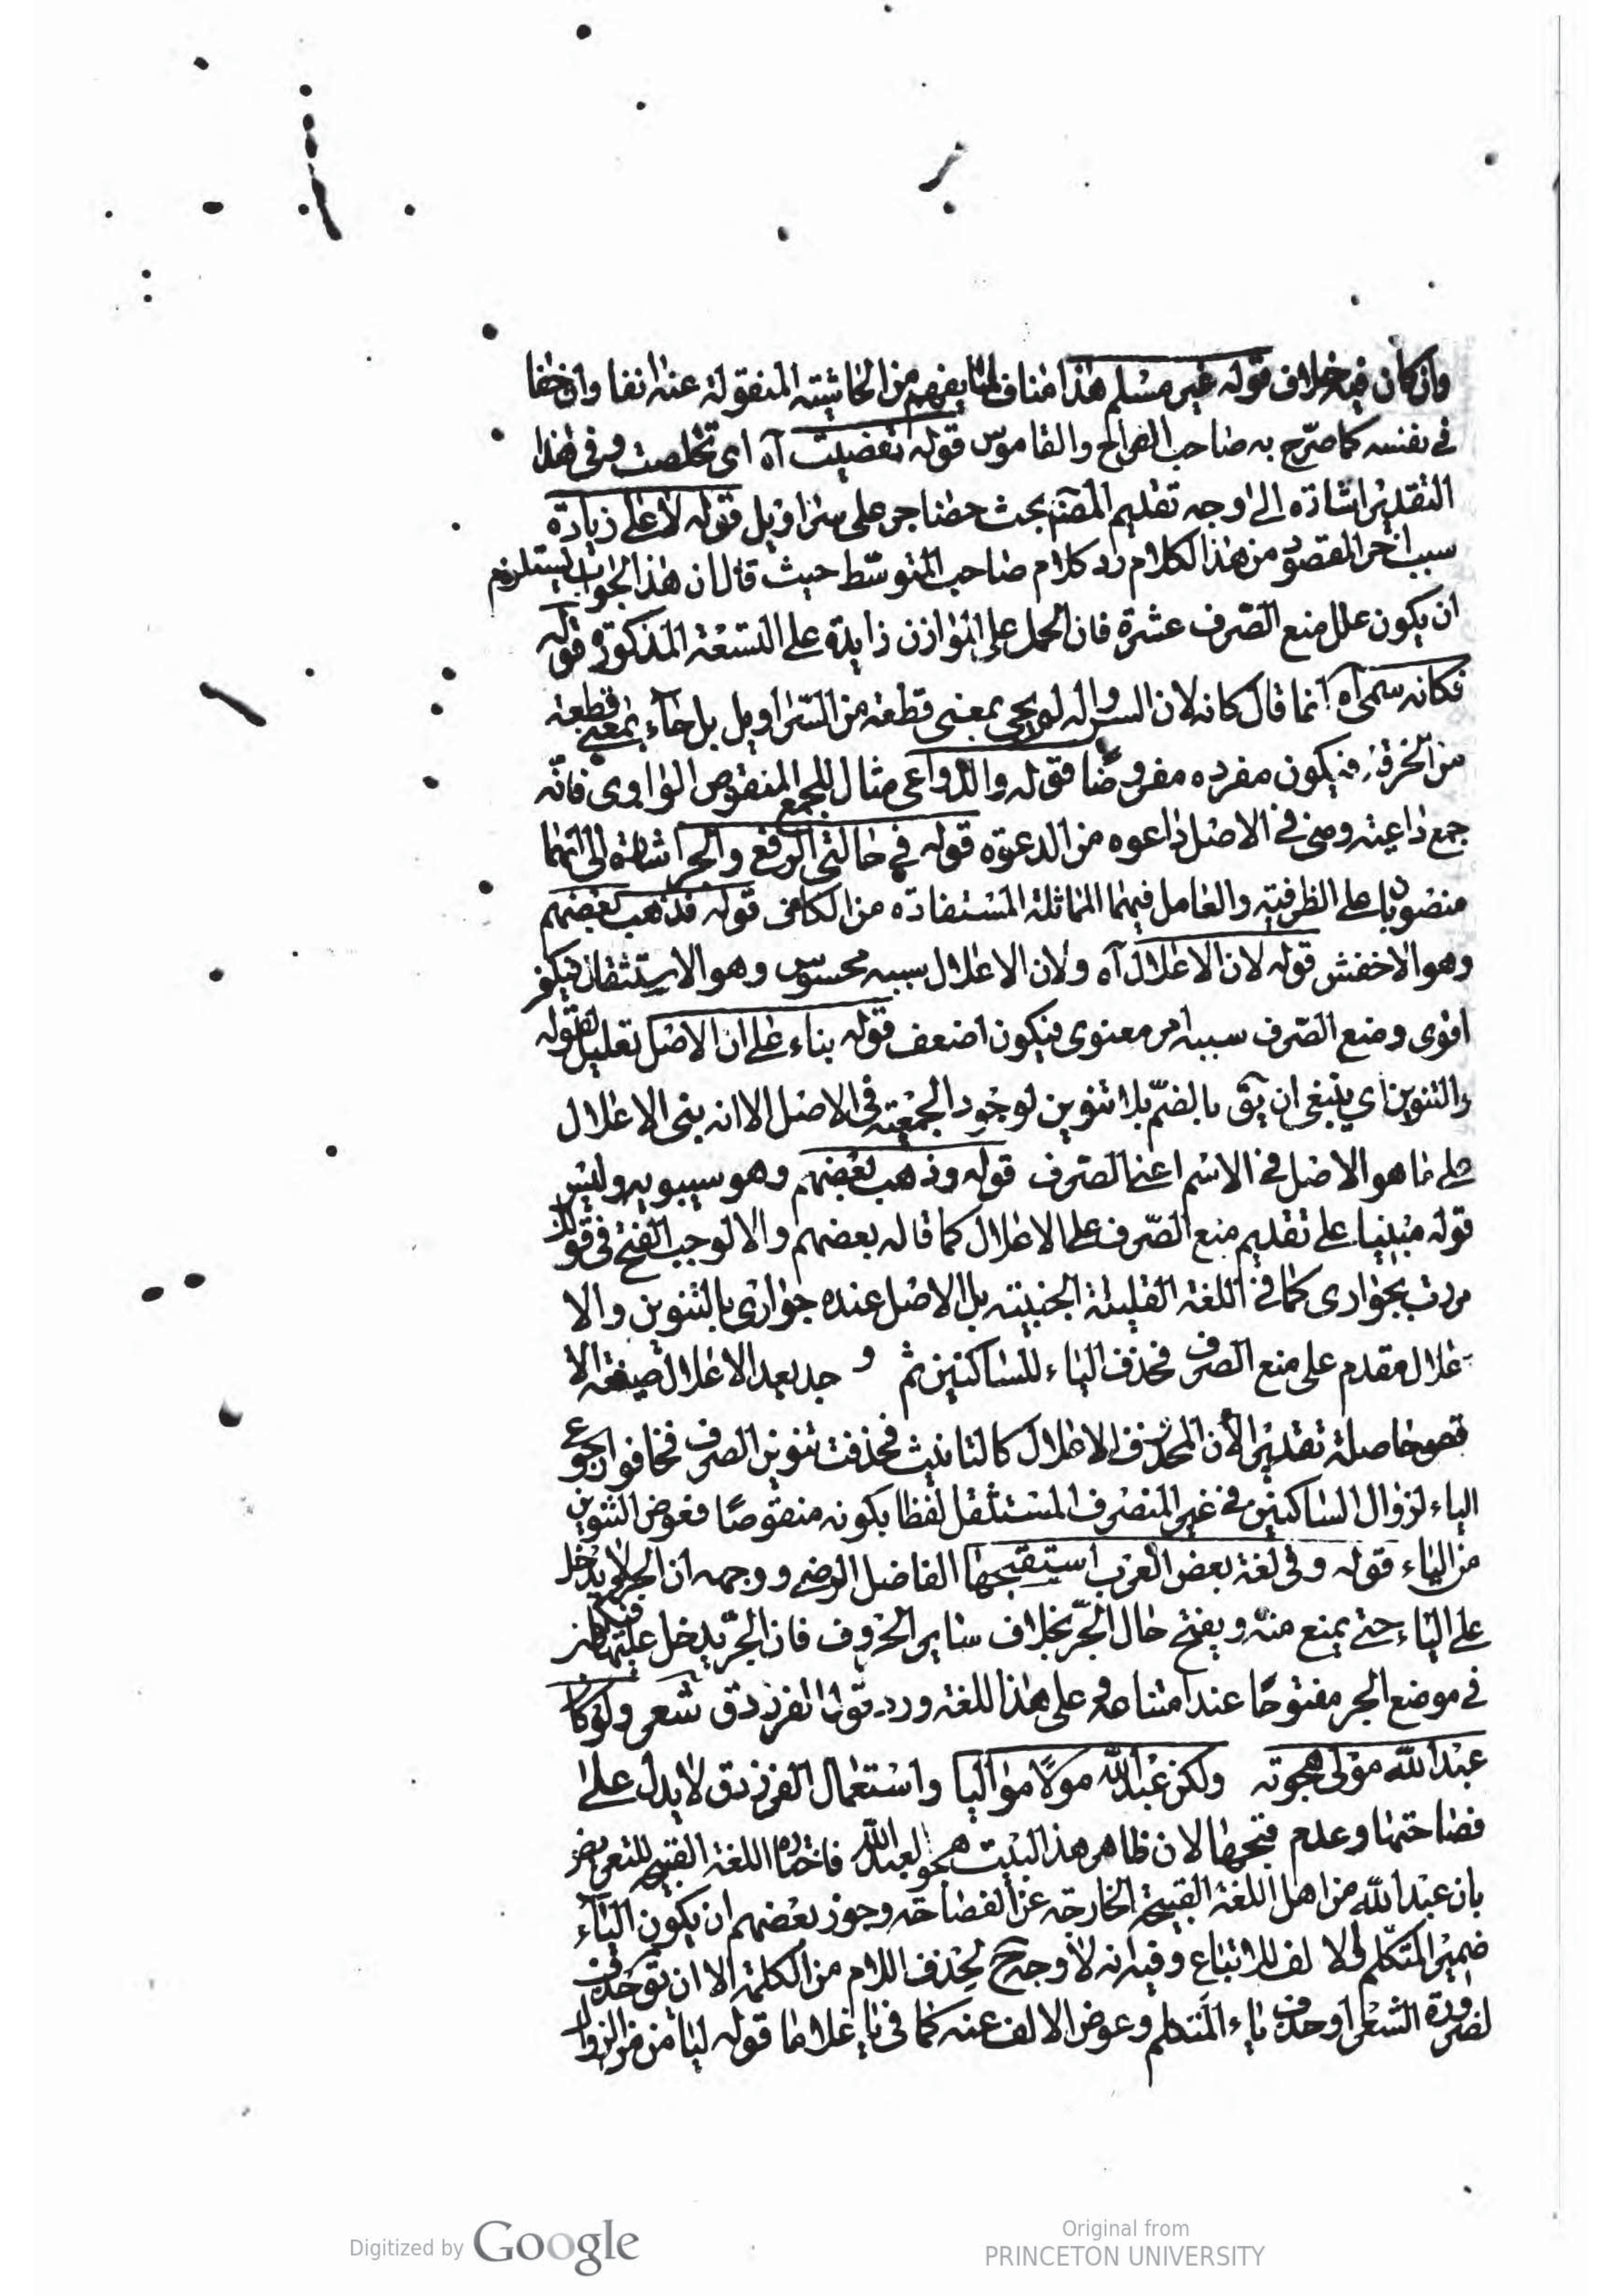 وان كان فيه خلاف قوله غير مسلم هذا مناف لما يفهم من الحاشية المنقولة عنه انفا وان خفا
في نفسه كما صرّح به صاحب الصراح والقاموس قوله تفصيت آه اى تخلصت وفى هذا
التقدير اشارة الى وجه تقديم المصنّف بحث حضاجر على سراويل قوله لا على زيادة
سبب اخر المقصود من هذا الكلام رد كلام صاحب المتوسّط حيث قال ان هذا الجواب يستلزم
ان يكون علل منع الصّرف عشرة فان الحمل على الموازن زايدة على التسعة المذكورة قوله
فكانه سمى آه انما قال كانه لان السروالة لم يجئ بمعنى قطعة من السّراويل بل جاء بمعنى قطعة
من الخرقة فيكون مفرده مفروضًا قوله والدّواعى مثال للجمع المنقوص الواوى فانّه
جمع داعية وهى في الاصل داعوه من الدعوة قوله في حالتى الرفع والجر اشارة الى انهما
منصوبان على الظرفية والعامل فيهما المماثلة المستفادة من الكاف قوله فذهب بعضهم
وهو الاخفش قوله لان الاعلال آه ولان الاعلال سببه محسوس وهو الاستثقال فيكون
اقوى ومنع الصّرف سببه امر معنوى فيكون اضعف قوله بناء على ان الاصل تعليل لقوله
والتنوين اي ينبغى ان يق بالضمّ بلا تنوين لوجود الجمعية فى الاصل الا انه بنى الاعلال
على ما هو الاصل في الاسم اعنى الصّرف قوله وذهب بعضهم وهو سيبويه وليس
قوله مبنيا على تقديم منع الصّرف على الاعلال كما قاله بعضهم والا لوجب الفتح فى قولك
مررت بجوارى كما في اللغة القليلة الخبيثة بل الاصل عنده جوارى بالتنوين والا
علال مقدم على منع الصرف فحذف الياء للساكنين ثم وجد بعد الاعلال صيغة الا
قصى حاصلة تقديرا لان المحذوف الاعلال كالثابت فحذفت تنوين الصرف فخافوا رجوع
الياء لزوال الساكنين في غير المنصرف المستثقل لفظا بكونه منقوصًا فعوض التنوين
من الياء قوله وفى لغة بعض العرب استقبحها الفاضل الرضى ووجهه ان الجر لا يدخل
على الياء حتى يمنع منه ويفتح حال الجرّ بخلاف ساير الحروف فان الجرّ يدخل عليها فيكون
في موضع الجر مفتوحًا عند امتناعه وعلى هذا اللغة ورد قول الفرزدق شعر ولو كا
عبد الله مولى هجوته ولكن عبد الله مولًا مواليا واستعمال الفرزدق لا يدل على
فصاحتها وعدم قبحها لان ظاهر هذا البيت هجو لعبد الله فاختاره اللغة القبيحة للتعريض
بان عبد الله من اهل اللغة القبيحة الخارجة عن الفصاحة وجوز بعضهم ان يكون الياء
ضمير المتكلم والالف للاشباع وفيه انه لا وجه ح لحذف اللام من الكلمة الا ان يق حذف
لضرورة الشعر او حذف ياء المتكلم وعوض الالف عنه كما فى يا غلاما قوله ليأمن من الزوال
Digitized by Google
Original from
PRINCETON UNIVERSITY